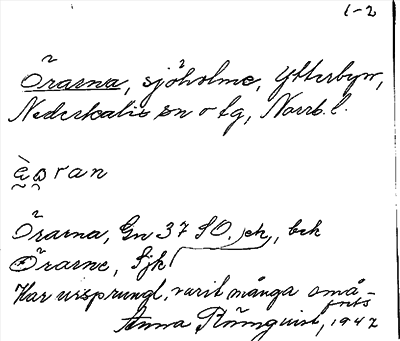 1-2
Örarna, sjöholme, Ytterbyn,
Nederkalix sn o tg, Norrb. l.
Örarna, Gn 37 SO. ek, bek
Örarne, Sjk
Har urspr­ungl. varit många små-
Anna Rönnqvist, 1947